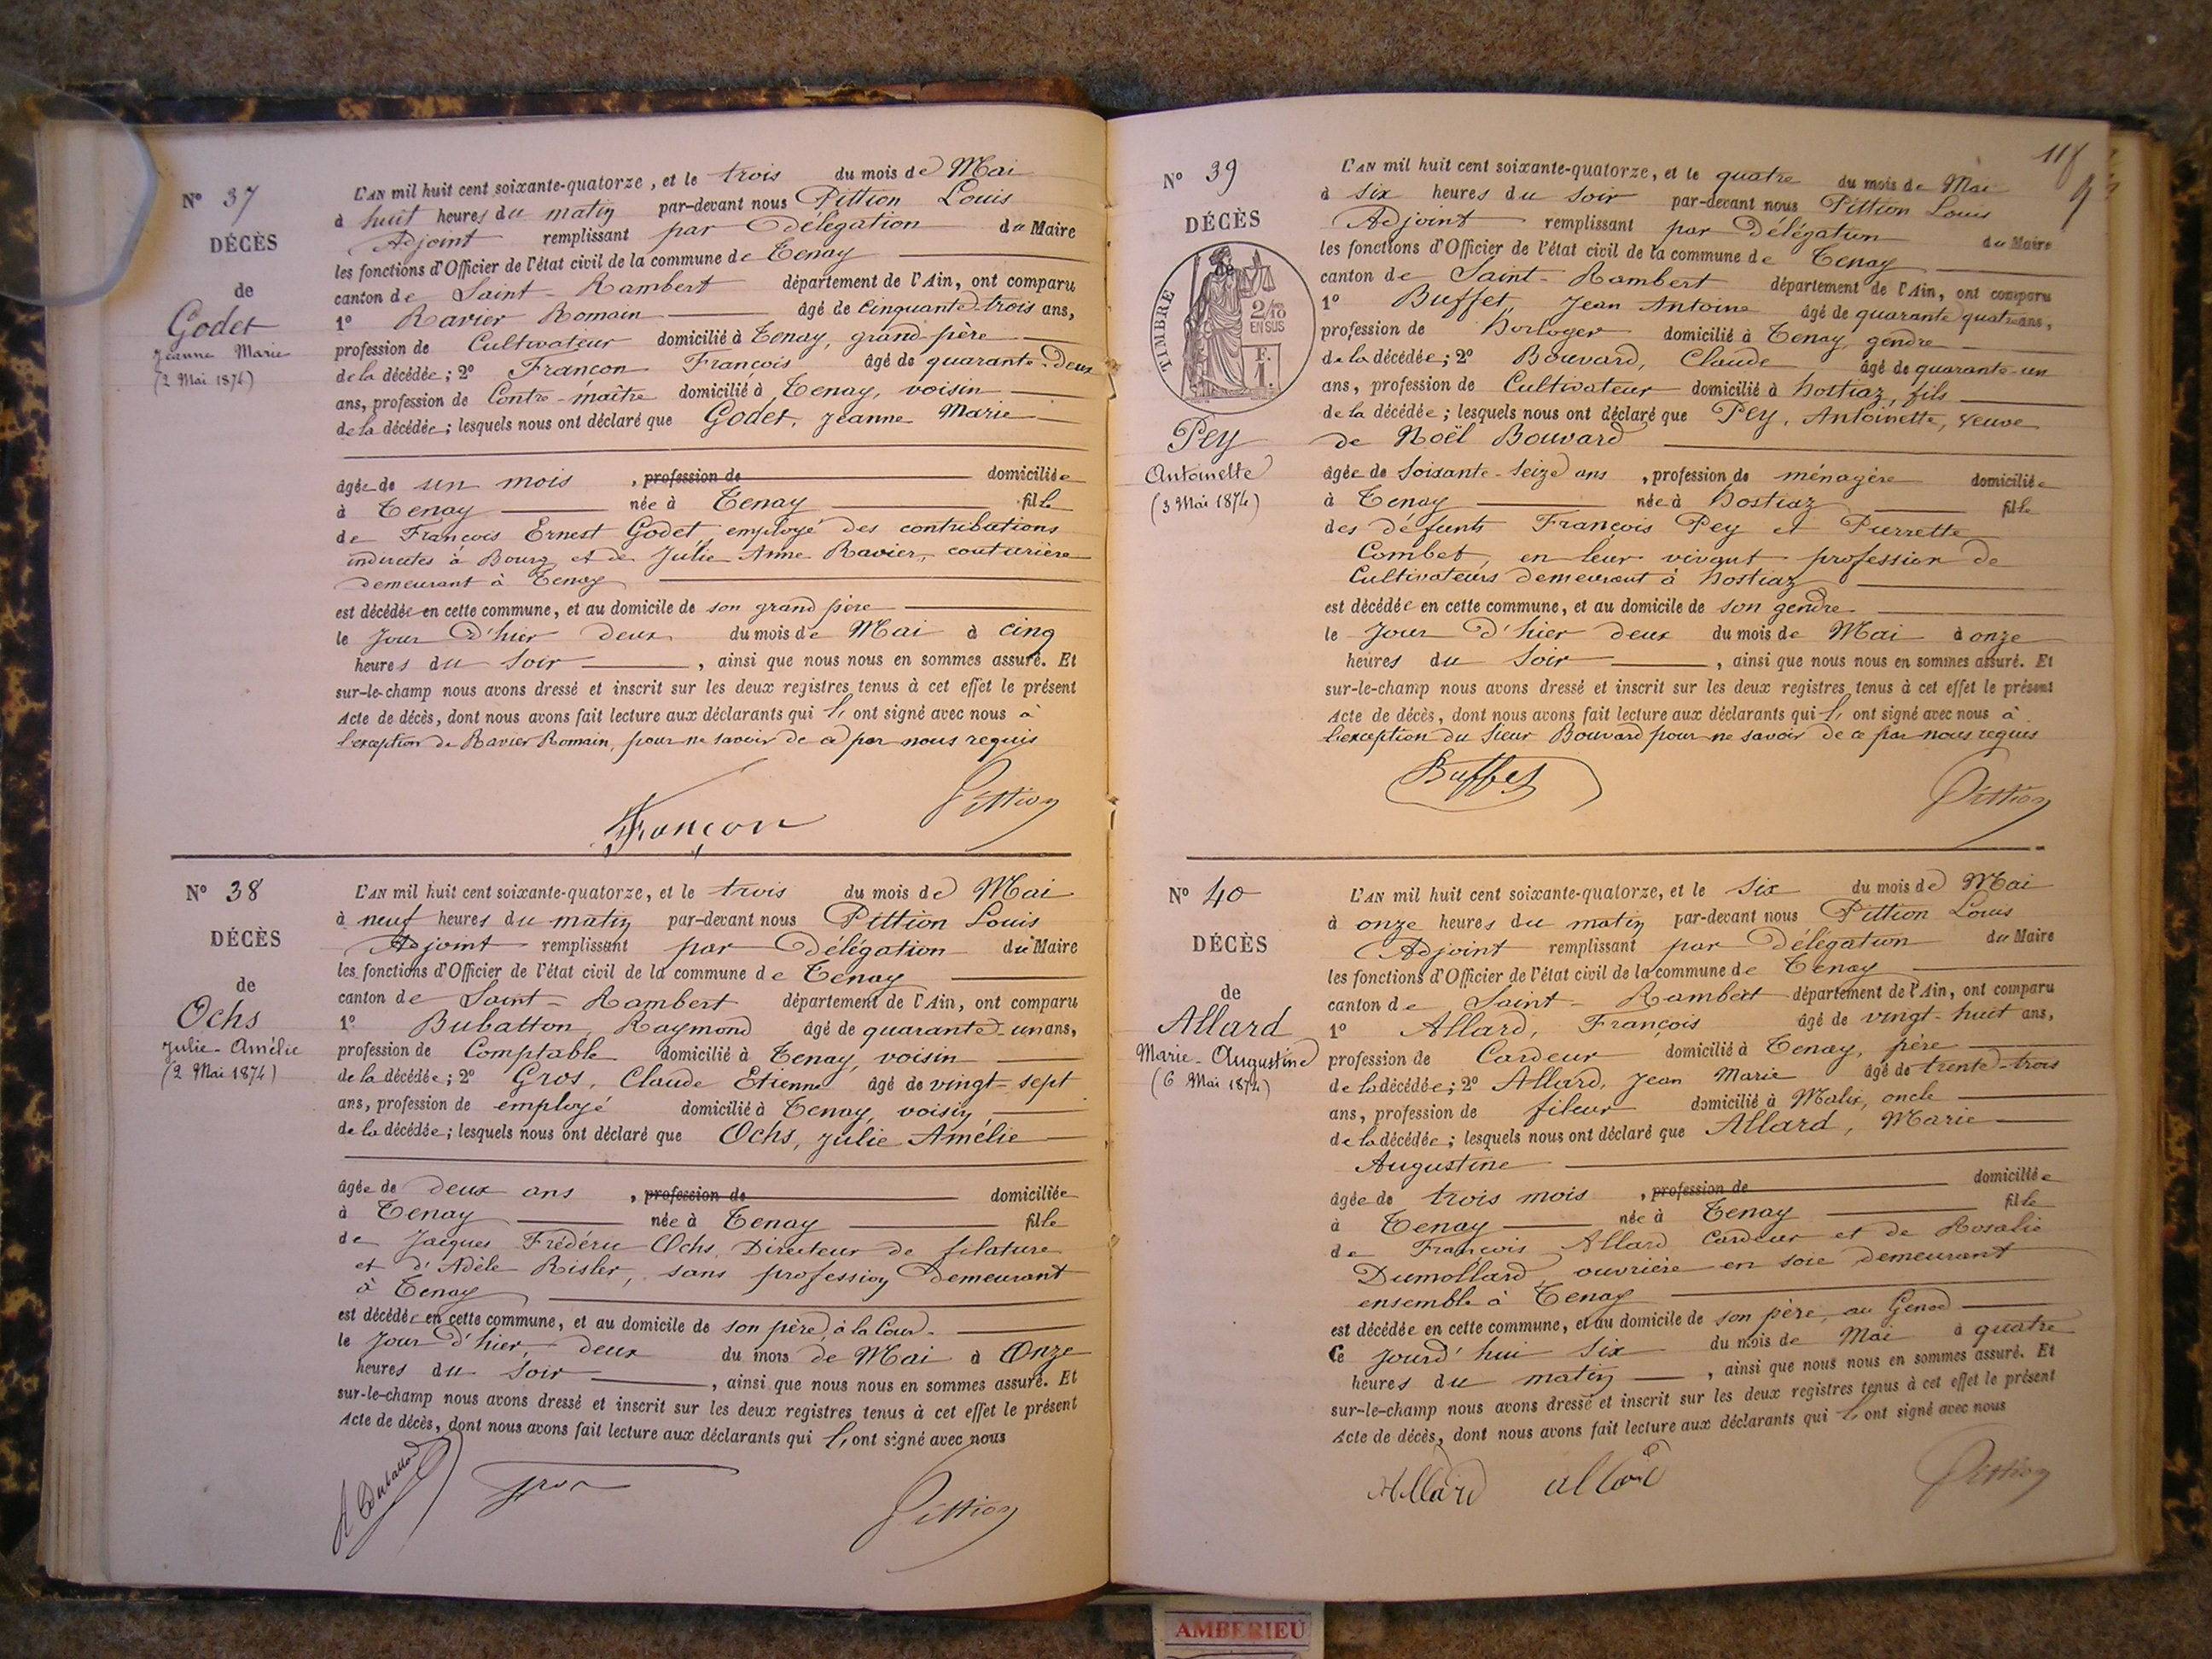 N° 37
DÉCÈS
de
Godet
Jeanne Marie
(2 Mai 1874)
L'AN mil huit cent soixante-quatorze, et le trois du mois de Mai
à huit heures du matin par-devant nous Pittion Louis
Adjoint remplissant par Délégation du Maire
les fonctions d'Officier de l'état civil de la commune de Tenay
canton de Saint-Rambert département de l'Ain, ont comparu
1° Ravier Romain âgé de cinquante-trois ans,
profession de Cultivateur domicilié à Tenay, grand-père
de la décédée; 2° Françon François âgé de quarante-deux
ans, profession de Contre-maître domicilié à Tenay, voisin
de la décédée; lesquels nous ont déclaré que Godet, Jeanne Marie
âgée de un mois, profession de domiciliée
à Tenay née à Tenay fille
de François Ernest Godet, employé des contributions
indirectes à Bourg et de Julie Anne Ravier, couturière
demeurant à Tenay
est décédée en cette commune, et au domicile de son grand père
le Jour d'hier deux du mois de Mai à cinq
heures du soir, ainsi que nous nous en sommes assuré. Et
sur-le-champ nous avons dressé et inscrit sur les deux registres tenus à cet effet le présent
Acte de décès, dont nous avons fait lecture aux déclarants qui l' ont signé avec nous à
l'exception de Ravier Romain, pour ne savoir de ce par nous requis
Françon Pittion
N° 38
DÉCÈS
de
Ochs
Julie-Amélie
(2 Mai 1874)
L'AN mil huit cent soixante-quatorze, et le trois du mois de Mai
à neuf heures du matin par-devant nous Pittion Louis
Adjoint remplissant par Délégation du Maire
les fonctions d'Officier de l'état civil de la commune de Tenay
canton de Saint-Rambert département de l'Ain, ont comparu
1° Bubatton, Raymond âgé de quarante-un ans,
profession de Comptable domicilié à Tenay, voisin
de la décédée; 2° Gros, Claude Etienne âgé de vingt-sept
ans, profession de employé domicilié à Tenay, voisin,
de la décédée; lesquels nous ont déclaré que Ochs, Julie Amélie
âgée de deux ans, profession de domiciliée
à Tenay née à Tenay fille
de Jacques Frédéric Ochs, Directeur de filature
et d'Adèle Risler, sans profession demeurant
à Tenay
est décédée en cette commune, et au domicile de son père, à la Cour
le Jour d'hier, deux du mois de Mai à Onze
heures du soir, ainsi que nous nous en sommes assuré. Et
sur-le-champ nous avons dressé et inscrit sur les deux registres tenus à cet effet le présent
Acte de décès, dont nous avons fait lecture aux déclarants qui l' ont signé avec nous
Gros Pittion
117
N° 39
DÉCÈS
TIMBRE
2/10
EN SUS
F.
1.
Pey
Antoinette
(3 Mai 1874)
L'AN mil huit cent soixante-quatorze, et le quatre du mois de Mai
à six heures du soir par-devant nous Pittion Louis
Adjoint remplissant par Délégation du Maire
les fonctions d'Officier de l'état civil de la commune de Tenay
canton de Saint-Rambert département de l'Ain, ont comparu
1° Buffet, Jean Antoine âgé de quarante quatre ans,
profession de horloger domicilié à Tenay, gendre
de la décédée; 2° Bouvard, Claude âgé de quarante-un
ans, profession de Cultivateur domicilié à hostiaz, fils
de la décédée; lesquels nous ont déclaré que Pey, Antoinette, veuve
de Noël Bouvard
âgée de Soixante-seize ans, profession de ménagère domiciliée
à Tenay née à hostiaz fille
des défunts François Pey et Pierrette
Combet, en leur vivant profession de
Cultivateurs demeurant à hostiaz
est décédée en cette commune, et au domicile de son gendre
le Jour d'hier deux du mois de Mai à onze
heures du soir, ainsi que nous nous en sommes assuré. Et
sur-le-champ nous avons dressé et inscrit sur les deux registres tenus à cet effet le présent
Acte de décès, dont nous avons fait lecture aux déclarants qui l' ont signé avec nous à
l'exception du sieur Bouvard pour ne savoir de ce par nous requis
Buffet Pittion
N° 40
DÉCÈS
de
Allard
Marie-Augustine
(6 Mai 1874)
L'AN mil huit cent soixante-quatorze, et le six du mois de Mai
à onze heures du matin par-devant nous Pittion Louis
Adjoint remplissant par Délégation du Maire
les fonctions d'Officier de l'état civil de la commune de Tenay
canton de Saint-Rambert département de l'Ain, ont comparu
1° Allard, François âgé de vingt-huit ans,
profession de Cardeur domicilié à Tenay, père
de la décédée; 2° Allard, Jean Marie âgé de trente-trois
ans, profession de fileur domicilié à Malix, oncle
de la décédée; lesquels nous ont déclaré que Allard, Marie
Augustine
âgée de trois mois, profession de domiciliée
à Tenay née à Tenay fille
de François Allard Cardeur et de Rosalie
Dumollard, ouvrière en soie demeurant
ensemble à Tenay
est décédée en cette commune, et au domicile de son père, au Genod
Ce Jourd'hui six du mois de Mai à quatre
heures du matin, ainsi que nous nous en sommes assuré. Et
sur-le-champ nous avons dressé et inscrit sur les deux registres tenus à cet effet le présent
Acte de décès, dont nous avons fait lecture aux déclarants qui l' ont signé avec nous
Allard allard Pittion
AMBERIEU